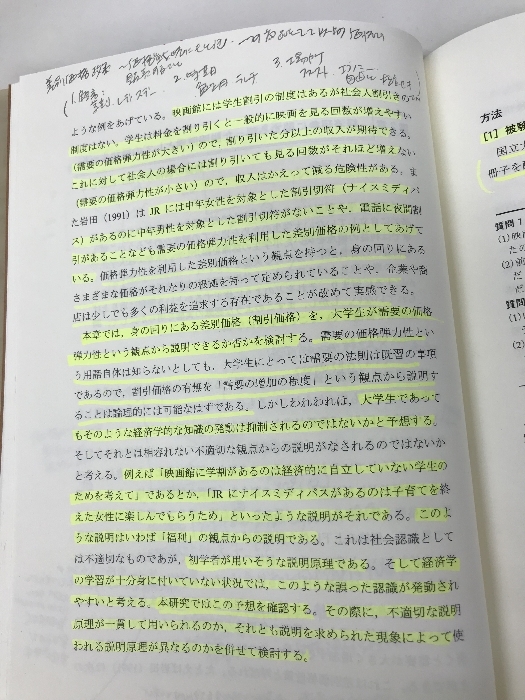 ような例をあげている。映画館には学生割引の制度はあるが社会人割引きの
制度はない。学生は料金を割り引くと一般的に映画を見る回数が増えやすい
(需要の価格弾力性が大きい)ので、割り引いた分以上の収入が期待できる。
これに対して社会人の場合には割り引いても見る回数がそれほど増えない
(需要の価格弾力性が小さい)ので、収入はかえって減る危険性がある。ま
た岩田(1991)はJRには中年女性を対象とした割引切符(ナイスミディパ
ス)があるのに中年男性を対象とした割引切符がないことや、電話に夜間割
引があることなども需要の価格弾力性を利用した差別価格の例としてあげて
いる。価格弾力性を利用した差別価格という観点を持つと、身の回りにある
さまざまな価格がそれなりの根拠を持って定められていることや、企業や商
店は少しでも多くの利益を追求する存在であることが改めて実感できる。
本章では、身の回りにある差別価格(割引価格)を、大学生が需要の価格
弾力性という観点から説明できるか否かを検討する。需要の価格弾力性とい
う用語自体は知らないとしても、大学生にとっては需要の法則は既習の事項
であるので、割引価格の有無を「需要の増加の程度」という観点から説明す
ることは論理的には可能なはずである。しかしわれわれは、大学生であって
もそのような経済学的な知識の発動は抑制されるのではないかと予想する。
そしてそれとは相容れない不適切な観点からの説明がなされるのではないか
と考える。例えば「映画館に学割があるのは経済的に自立していない学生の
ためを考えて」であるとか、「JRにナイスミディパスがあるのは子育てを終
えた女性に楽しんでもらうため」といったような説明がそれである。このよ
うな説明はいわば「福利」の観点からの説明である。これは社会認識として
は不適切なものであるが、初学者が用いそうな説明原理である。そして経済学
の学習が十分身に付いていない状況では、このような誤った認識が発動され
やすいと考える。本研究ではこの予想を確認する。その際に、不適切な説明
原理が一貫して用いられるのか、それとも説明を求められた現象によって使
われる説明原理が異なるのかを併せて検討する。
方法
[1] 被験
国立大
冊子を配
質問1
(1)映
たの
(2)
だ
質問
(1)
(2)